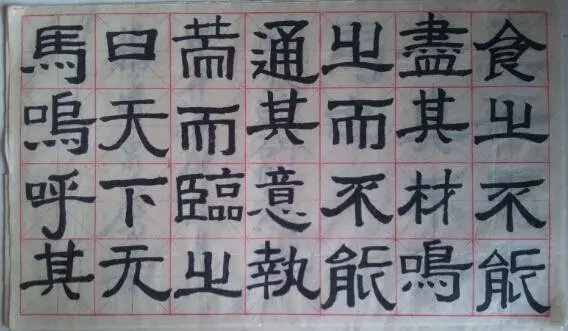 食之不能
盡其材鳴
之而不能
通其意執
策而臨之
曰天下无
馬嗚呼其